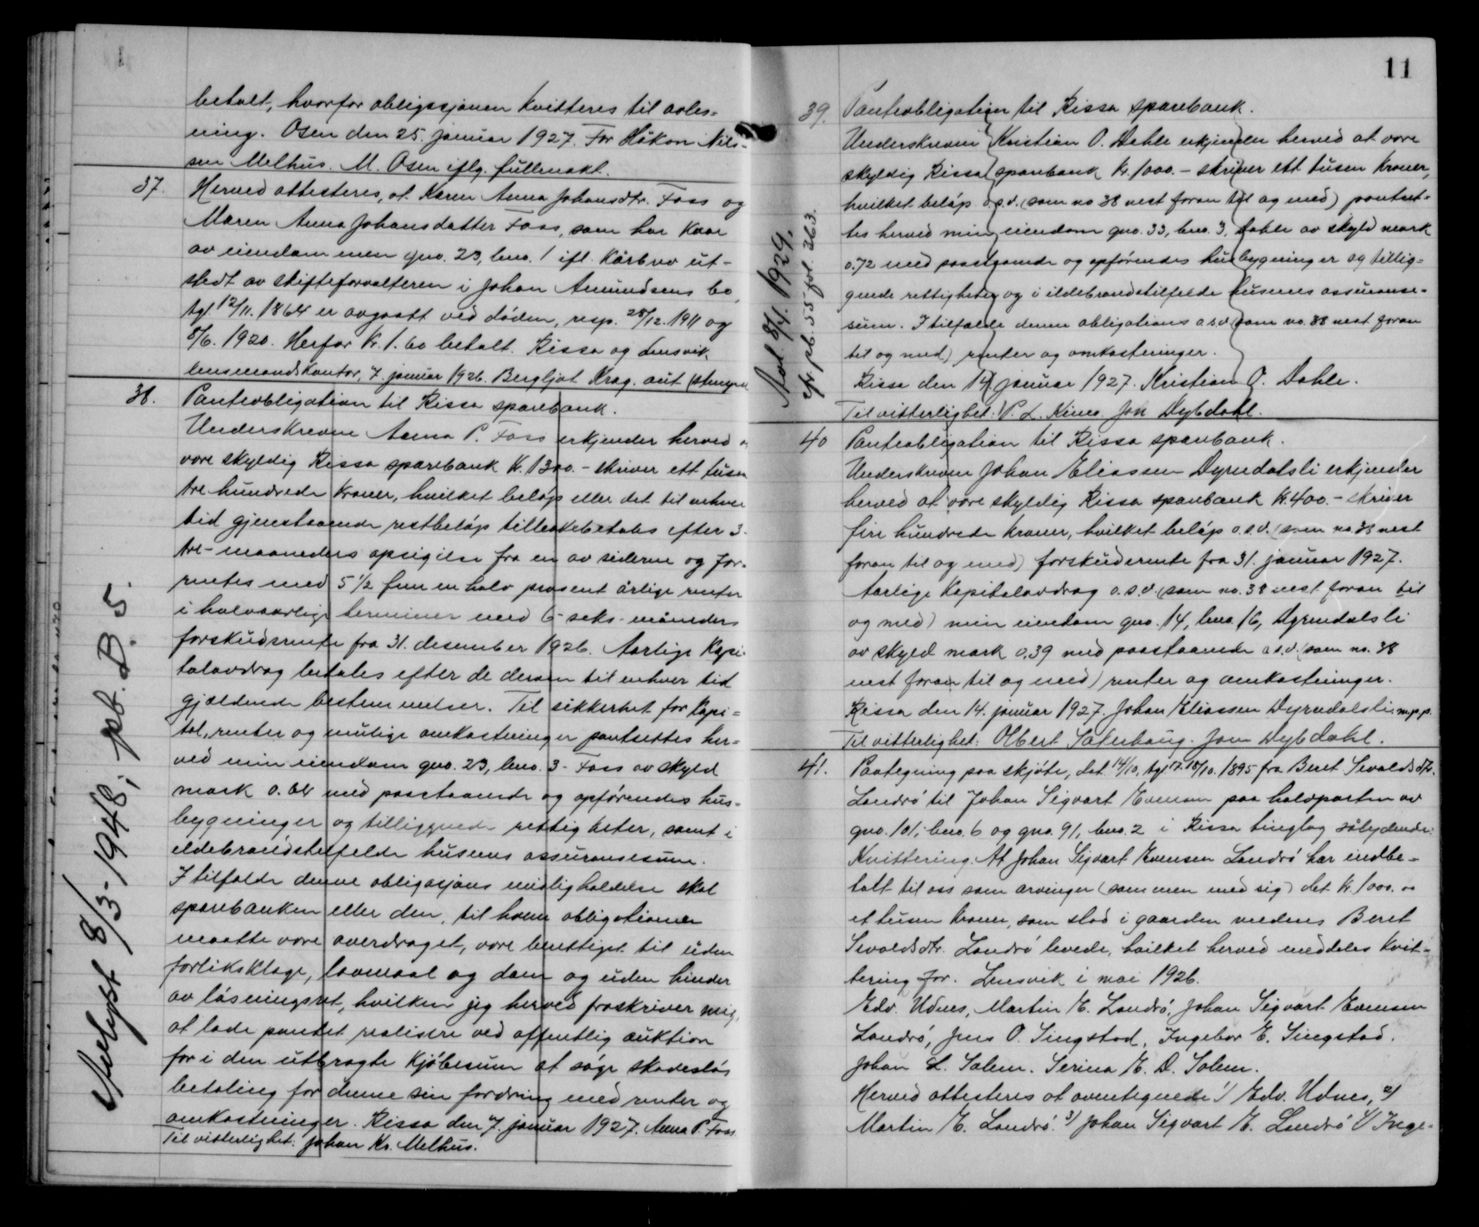 betalt, hvorfor obligasjonen kvitteres til avles=
ning. Osen den 25 januar 1927. For Håkon Nils-
sen Melhus. M. Osen iflg. fullmakt.
37. Herved attesteres, at Karen Anna Johansdtr. Foss og
Maren Anna Johansdatter Foss, som har kaar
av eiendommen gno. 23, bno. 1 ifl. kårbrev ut-
stedt av skifteforvalteren i Johan Amundsens bo,
tgl 12/11. 1864 er avgaatt ved døden, resp. 28/12. 1911 og
8/6. 1920. Herfor kr. 1.60 betalt. Rissa og Lensvik
lensmandskontor, 7 januar 1926. Bergljot Krag. aut
38. Panteobligation til Rissa sparebank.
Underskrevne Anna P. Foss erkjender herved
være skyldig Rissa sparebank kr. 1300.- skriver ett tusen
tre hundrede kroner, hvilket beløp eller det til enhver
tid gjenstaaende restbeløp tilbakebetales efter 3-
tre- maaneders opsigelse fra en av siderne og for-
rentes med 5 1/2 fem en halv prosent årlige renter
i halvaarlige terminer med 6- seks- måneders
forskudsrente fra 31. desember 1926. Aarlige kapi-
talavdrag betales efter de derom til enhver tid
gjældende bestemmelser. Til sikkerhet for kapi=
tal, renter og mulige omkostninger pantsettes her=
ved min eiendom gno. 23, bno. 3- Foss av skyld
mark 0.64 med paastaaende og opførendes hus-
bygninger og tilliggende rettigheter, samt i
ildebrandstilfelde husenes assuransesum.
I tilfælde denne obligasjons misligholdelse skal
sparebanken eller den, til hvem obligationen
maatte være overdraget, være berettiget til uden
forliksklage, lovmaal og dom og uden hinder
av løsningsret, hvilken jeg herved fraskriver mig,
at lade pantet realisere ved offentlig auktion
for i den utbragte kjøbesum at søge skadesløs
betaling for denne sin fordring med renter og
omkostninger. Rissa den 7. januar 1927. Anna P. Foss
Til vitterlighet: Johan Kr. Melhus.
Avlyst 8/3-1948; pb. B. 5.
11
39. Panteobligation til Rissa sparebank.
Underskrevne Kristian O. Dahle erkjender herved at være
skyldig Rissa sparebank kr. 1000.- skriver ett tusen kroner,
hvilket beløp o.s.v. (som no 38 nest foran til og med) pantset-
tes herved min eiendom gno. 33, bno. 3, Dahle av skyld mark
0.72 med paastaaende og opførendes husbygninger og tillig=
gende rettigheter og i ildebrandstilfelde husenes assuranse=
sum. I tilfælde denne obligations o.s.v (som no. 38 nest foran
til og med) renter og omkostninger.
Rissa den 14 januar 1927. Kristian O. Dahle.
Til vitterlighet: P. L. Kimo Jon Dybdahl.
Avl. 8/4. 1929.
jfr. pb. 55 fol. 263.
40 Panteobligation til Rissa sparebank.
Underskrevne Johan Eliassen Dyrndalsli erkjender
herved at være skyldig Rissa sparebank kr. 400.- skriver
fire hundrede kroner, hvilket beløp o.s.v. (som no 38 nest
foran til og med) forskudsrente fra 31. januar 1927.
Aarlige kapitalavdrag o.s.v. (som no. 38 nest foran til
og med) min eiendom gno. 14, bno. 16, Dyrndalsli
av skyld mark 0,39 med paastaaende o.s.v. (som no. 38
nest foran til og med) renter og omkostninger.
Rissa den 14. januar 1927. Johan Eliassen Dyrndalsli m.p.p.
Til vitterlighet: Olbert Saterhaug. Jon Dybdahl.
41. Paategning paa skjøte, dat. 14/10, tgl 17-18/10. 1895 fra Beret Sivaldsdtr.
Landrø til Johan Sigvart Evensen paa halvparten av
gno. 101, bno. 6 og gno. 91, bno. 2 i Rissa tinglag sålydende:
Kvittering. At Johan Sigvart Evensen Landrø har indbe-
talt til oss som arvinger (sammen med sig) det kr. 1000.00
et tusen kroner, som stod i gaarden medens Beret
Sivaldsdtr. Landrø levede, hvilket herved meddeles kvit-
tering for. Lensvik i mai 1926.
Edv. Udnes, Martin E. Landrø, Johan Sigvart Evensen
Landrø, Jens O. Singstad, Ingebor E. Singstad.
Johan L. Solem. Serina E. D. Solem.
Herved attesteres at oventegnede 1) Edv. Udnes, 2)
Martin E. Landrø. 3) Johan Sigvart E. Landrø 4) Inge-